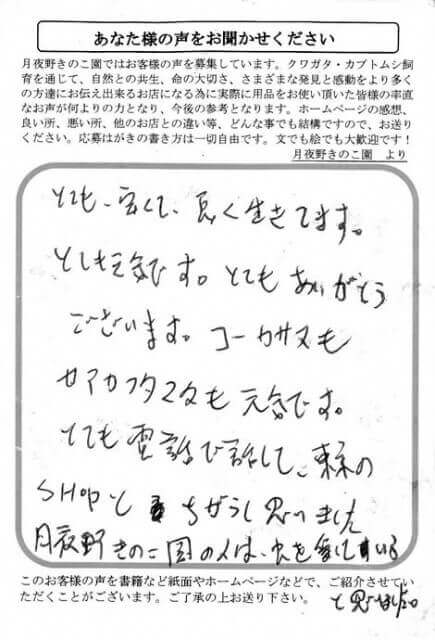 あなた様の声をお聞かせください
月夜野きのこ園ではお客様の声を募集しています。クワガタ・カブトムシ飼
育を通じて、自然との共生、命の大切さ、さまざまな発見と感動をより多く
の方達にお伝え出来るお店になる為に実際に用品をお使い頂いた皆様の率直
なお声が何よりの力となり、今後の参考となります。ホームページの感想、
良い所、悪い所、他のお店との違い等、どんな事でも結構ですので、お送り
ください。応募はがきの書き方は一切自由です。文でも絵でも大歓迎です！
月夜野きのこ園 より
とても、良くて、長く生きてます。
とても元気です。とても ありがとう
ございます。コーカサスも
も 元気です。
とても 電話で話して、東京の
SHOPと ちがうと思いました
月夜野きのこ園の人は、虫を愛している
と思いました
このお客様の声を書籍など紙面やホームページなどで、ご紹介させてい
ただくことがございます。ご了承の上お送り下さい。